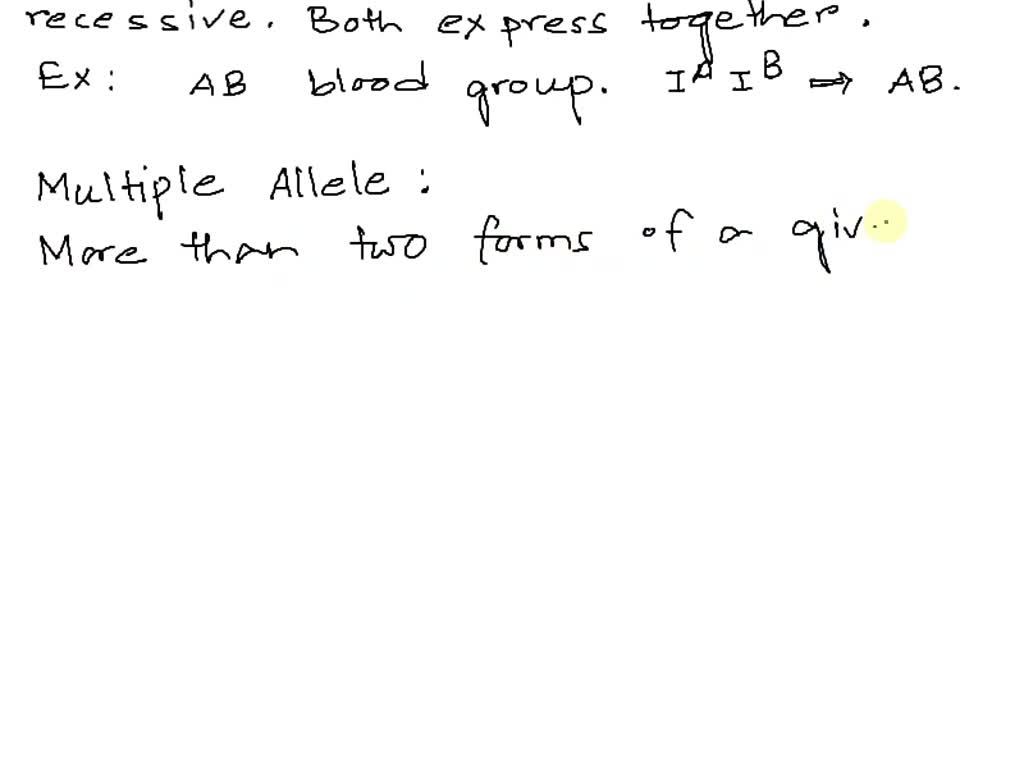 recessive. Both express together.
Ex: AB blood group. I^A I^B ⇒ AB.
Multiple Allele:
More than two forms of a giv